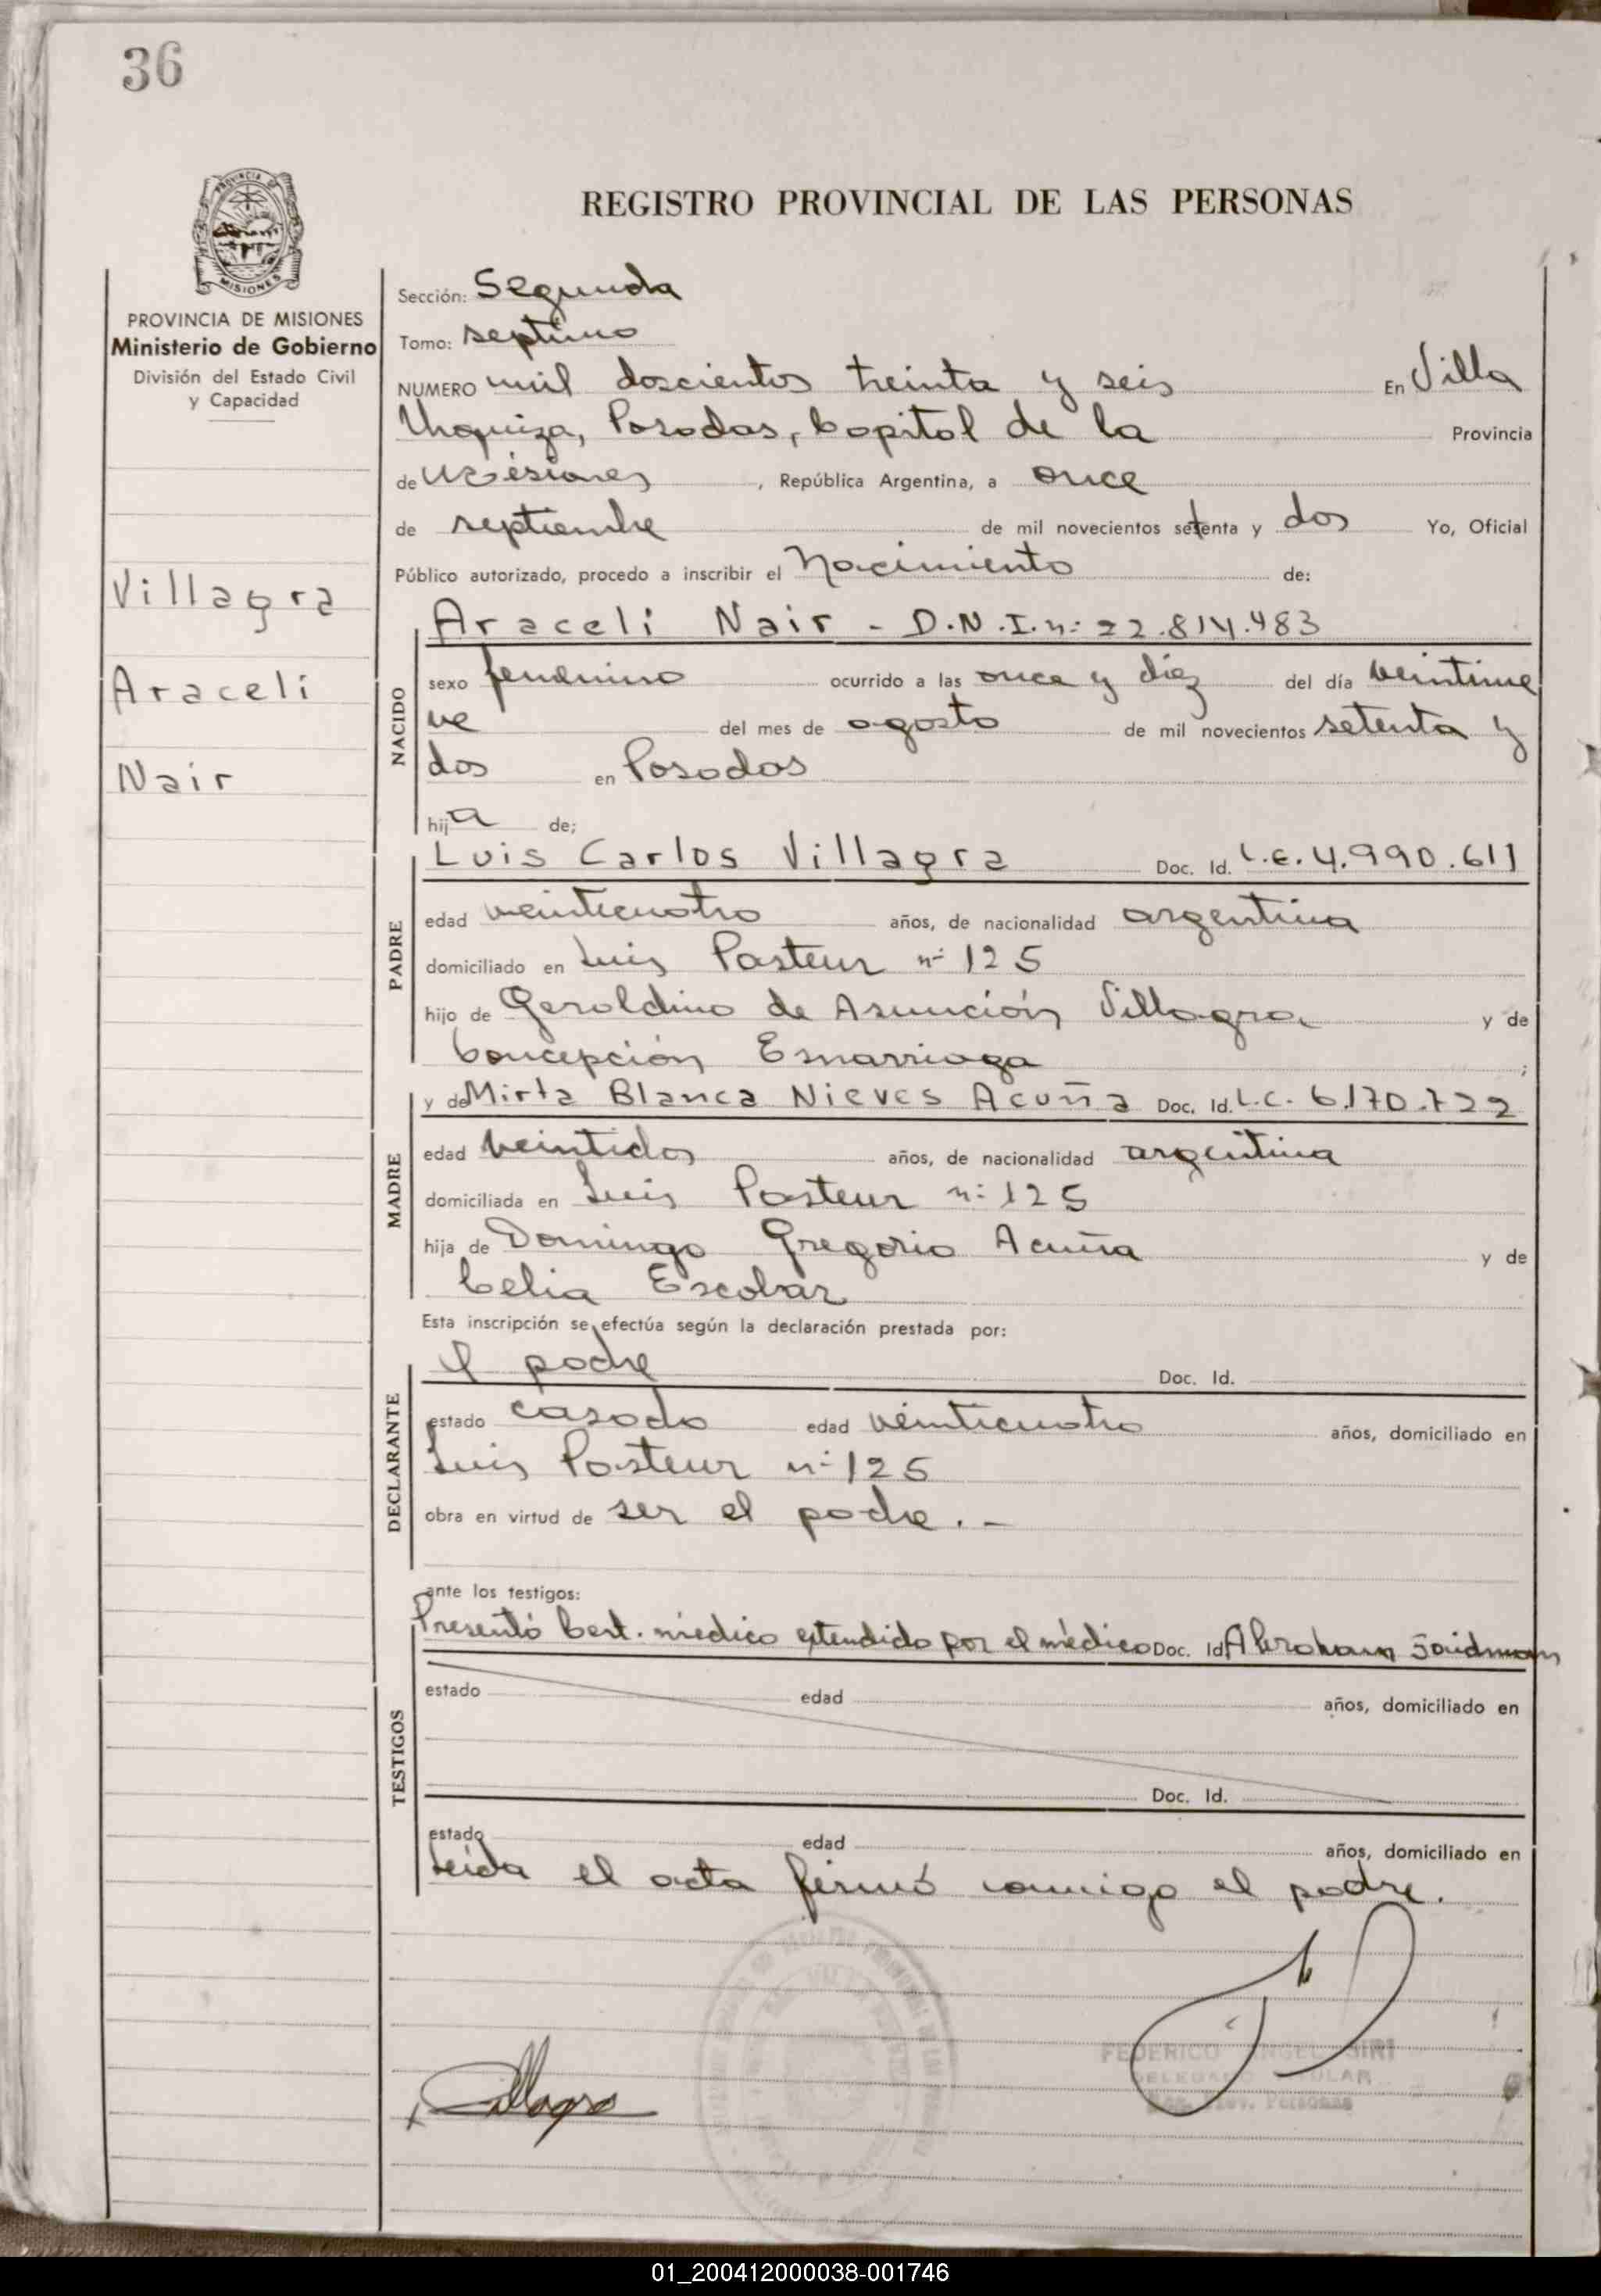 36
REGISTRO PROVINCIAL DE LAS PERSONAS
PROVINCIA DE MISIONES
Ministerio de Gobierno
División del Estado Civil
y Capacidad
Villagra
Araceli
Nair
Sección: Segunda
Tomo: septimo
NUMERO mil doscientos treinta y seis En Villa
Urquiza, Posadas, Capital de la Provincia
de Misiones, República Argentina, a once
de septiembre de mil novecientos setenta y dos Yo, Oficial
Público autorizado, procedo a inscribir el Nacimiento de:
NACIDO
Araceli Nair - D.N.I.n: 22.814.483
sexo femenino ocurrido a las once y diez del día veintinue
ve del mes de agosto de mil novecientos setenta y
dos en Posadas
hija de;
PADRE
Luis Carlos Villagra Doc. Id. L.E. 4.990.611
edad veinticuatro años, de nacionalidad argentina
domiciliado en Luis Pasteur nº 125
hijo de Geroldino de Asunción Villagra y de
Concepción ;
MADRE
y de Mirta Blanca Nieves Acuña Doc. Id. L.C. 6.170.722
edad veintidos años, de nacionalidad argentina
domiciliada en Luis Pasteur n: 125
hija de Domingo Gregorio Acuña y de
Celia Escobar
Esta inscripción se efectúa según la declaración prestada por:
DECLARANTE
el padre Doc. Id.
estado casado edad veinticuatro años, domiciliado en
Luis Pasteur nº 125
obra en virtud de ser el padre. -
ante los testigos:
TESTIGOS
Presentó Cert. médico extendido por el médico Doc. Id. Abraham
estado edad años, domiciliado en
Doc. Id.
estado edad años, domiciliado en
Leída el acta firmó conmigo el padre.
Villagra
FEDERICO ANGEL SIRI
DELEGADO TITULAR
Personas
01_200412000038-001746